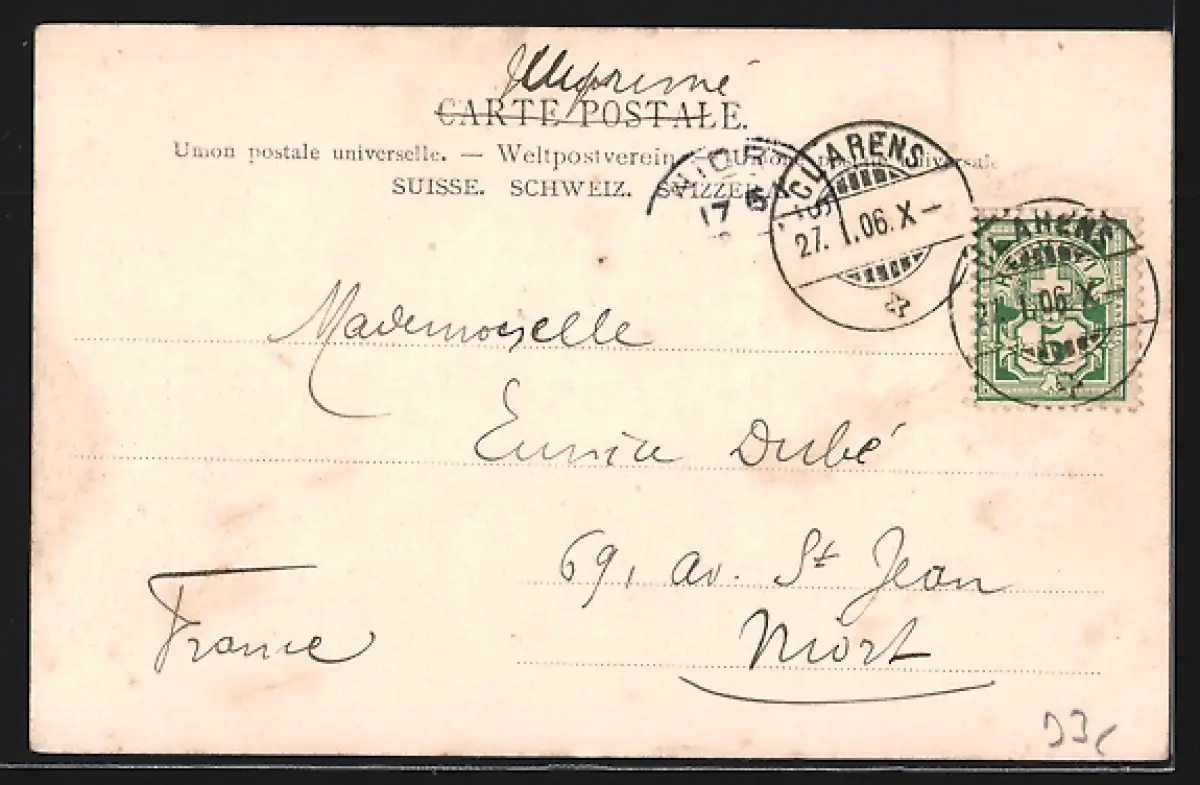 Imprimé
CARTE POSTALE.
Union postale universelle. — Weltpostverein. — Unione postale universale
SUISSE. SCHWEIZ. SVIZZERA.
NIORT
17
CLARENS
27. I. 06. X —
CLARENS
27. I. 06. X —
5
Mademoiselle
Eunice Dubé
69, av. St Jean
Niort
France